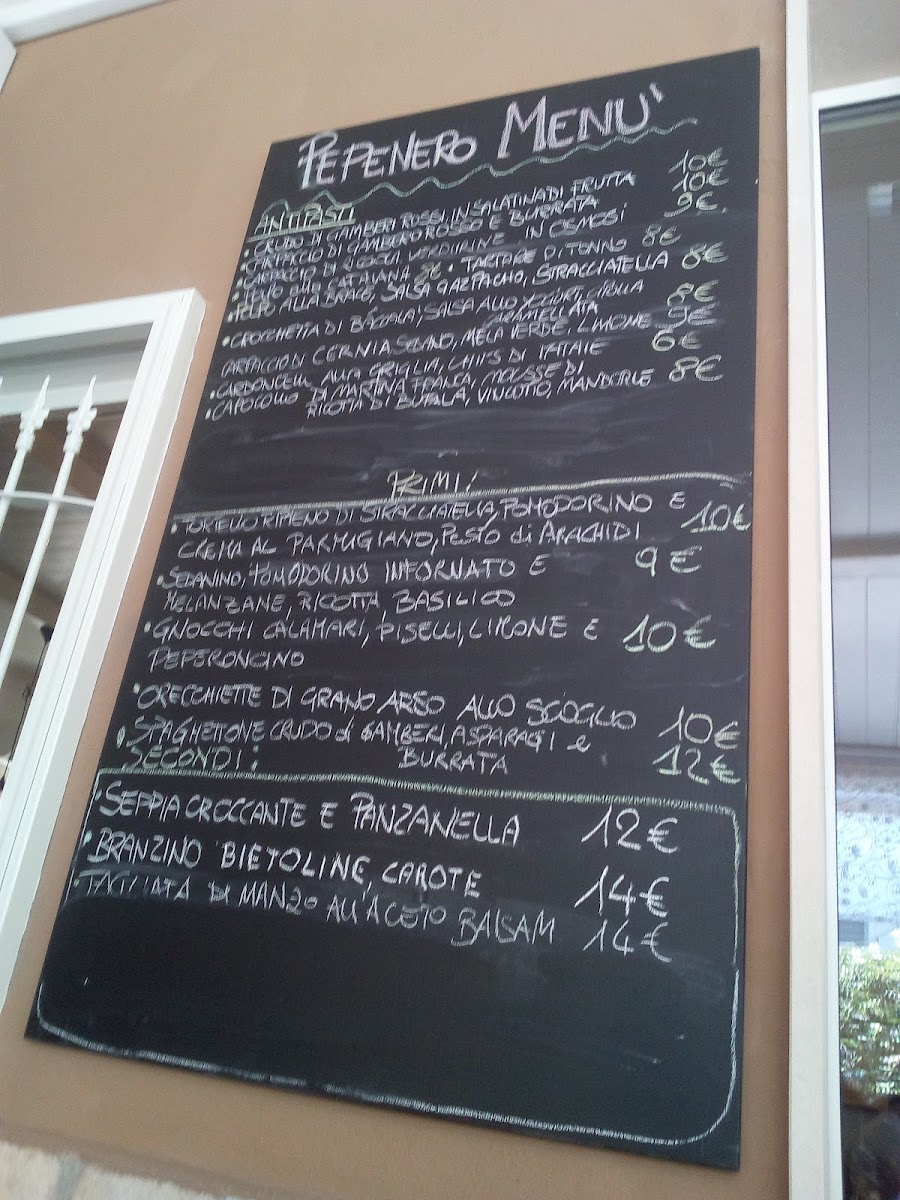 PEPENERO MENU'
ANTIPASTI
• CRUDO DI GAMBERI ROSSI, INSALATINA DI FRUTTA 10€
• CARPACCIO DI GAMBERO ROSSO E BURRATA 10€
CARPACCIO DI VERDURINE IN OSMOSI 9€
• ALLA CATALANA 8€ • TARTARE DI TONNO 8€
• POLPO ALLA BRACE, SALSA GAZPACHO, STRACCIATELLA 8€
• CROCCHETTA DI BACCALA', SALSA ALLO YOGURT, CIPOLLA 8€
CARAMELLATA
CARPACCIO DI CERNIA, SEDANO, MELA VERDE, LIMONE 9€
• CARDONCELLI ALLA GRIGLIA, CHIPS DI PATATE 6€
• CAPOCOLLO DI MARTINA FRANCA, MOUSSE DI
RICOTTA DI BUFALA, VINCOTTO, MANDORLE 8€
PRIMI:
• TORTELLO RIPIENO DI STRACCIATELLA, POMODORINO E
CREMA AL PARMIGIANO, PESTO di ARACHIDI 10€
• SEDANINO, POMODORINO INFORNATO E 9€
MELANZANE, RICOTTA, BASILICO
• GNOCCHI CALAMARI, PISELLI, LIMONE E 10€
PEPERONCINO
• ORECCHIETTE DI GRANO ARSO ALLO SCOGLIO 10€
• SPAGHETTONE CRUDO di GAMBERI, ASPARAGI e
BURRATA 12€
SECONDI:
• SEPPIA CROCCANTE E PANZANELLA 12€
• BRANZINO BIETOLINE, CAROTE 14€
• TAGLIATA DI MANZO ALL'ACETO BALSAM 14€